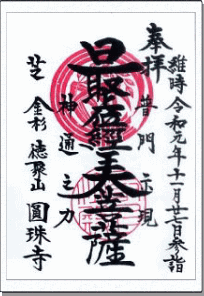 維時令和元年十一月廿一日参詣
奉拝
普門示現
最上位經王大菩薩
神通之力
芝 金杉 徳聚山 圓珠寺